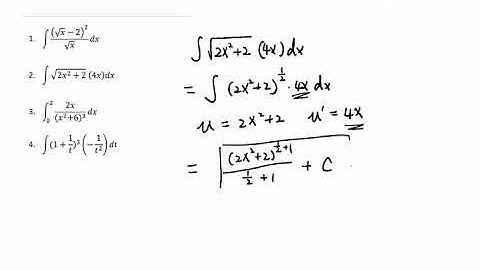 1. ∫ (√x − 2)² / √x dx
2. ∫ √(2x² + 2) (4x)dx
3. ∫₀² 2x / (x²+6)³ dx
4. ∫ (1 + 1/t)³ (−1/t²) dt
∫ √(2x²+2) (4x) dx
= ∫ (2x²+2)^(1/2) · 4x dx
u = 2x²+2 u' = 4x
= (2x²+2)^(1/2+1) / (1/2 + 1) + C